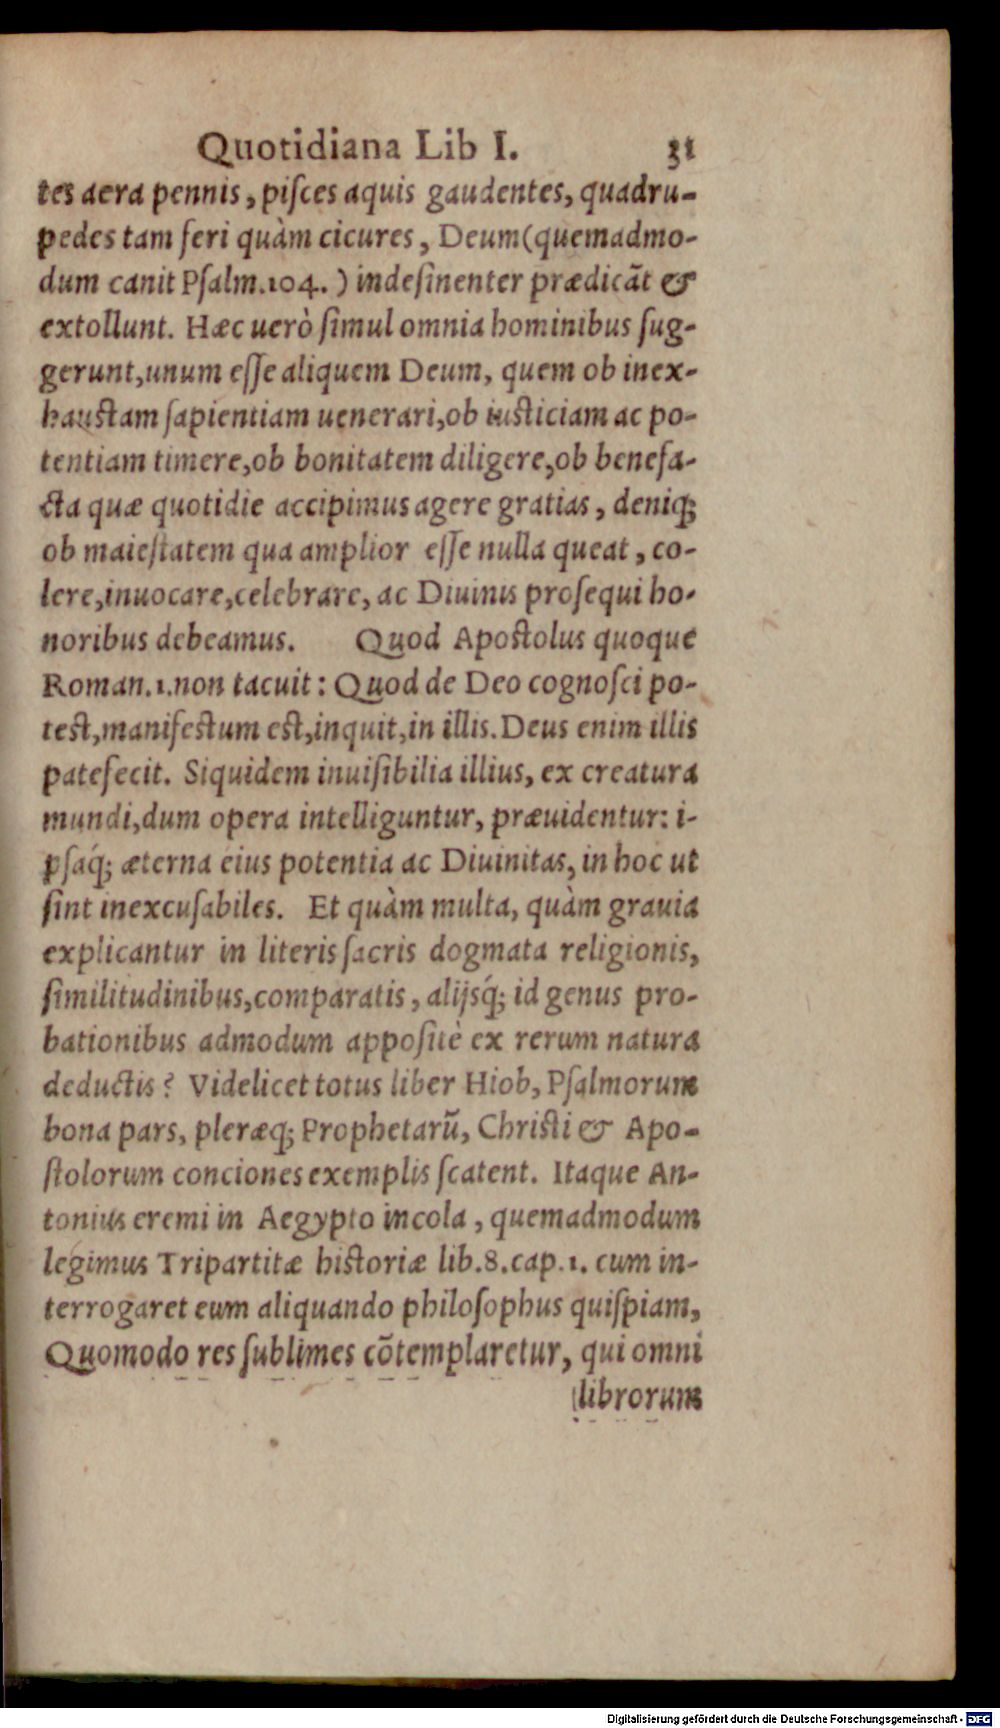 Quotidiana Lib I. 31
tes aera pennis, piſces aquis gaudentes, quadru-
pedes tam feri quàm cicures, Deum(quemadmo-
dum canit Pſalm.104.) indeſinenter prædicãt &
extollunt. Hæc uerò ſimul omnia hominibus ſug-
gerunt,unum eſſe aliquem Deum, quem ob inex-
hauſtam ſapientiam uenerari,ob iuſticiam ac po-
tentiam timere,ob bonitatem diligere,ob benefa-
cta quæ quotidie accipimus agere gratias, deniq;
ob maieſtatem qua amplior eſſe nulla queat, co-
lere,inuocare,celebrare, ac Diuinis proſequi ho-
noribus debeamus. Quod Apoſtolus quoque
Roman.1.non tacuit: Quod de Deo cognoſci po-
teſt,manifeſtum eſt,inquit,in illis.Deus enim illis
patefecit. Siquidem inuiſibilia illius, ex creatura
mundi,dum opera intelliguntur, præuidentur: i-
pſaq́; æterna eius potentia ac Diuinitas, in hoc ut
ſint inexcuſabiles. Et quàm multa, quàm grauia
explicantur in literis ſacris dogmata religionis,
ſimilitudinibus,comparatis, alijsq́; id genus pro-
bationibus admodum appoſitè ex rerum natura
deductis? Videlicet totus liber Hiob, Pſalmorum
bona pars, pleræq; Prophetarũ, Chriſti & Apo-
ſtolorum conciones exemplis ſcatent. Itaque An-
tonius eremi in Aegypto incola, quemadmodum
legimus Tripartitæ hiſtoriæ lib.8.cap.1. cum in-
terrogaret eum aliquando philoſophus quiſpiam,
Quomodo res ſublimes cõtemplaretur, qui omni
librorum
Digitalisierung gefördert durch die Deutsche Forschungsgemeinschaft - DFG